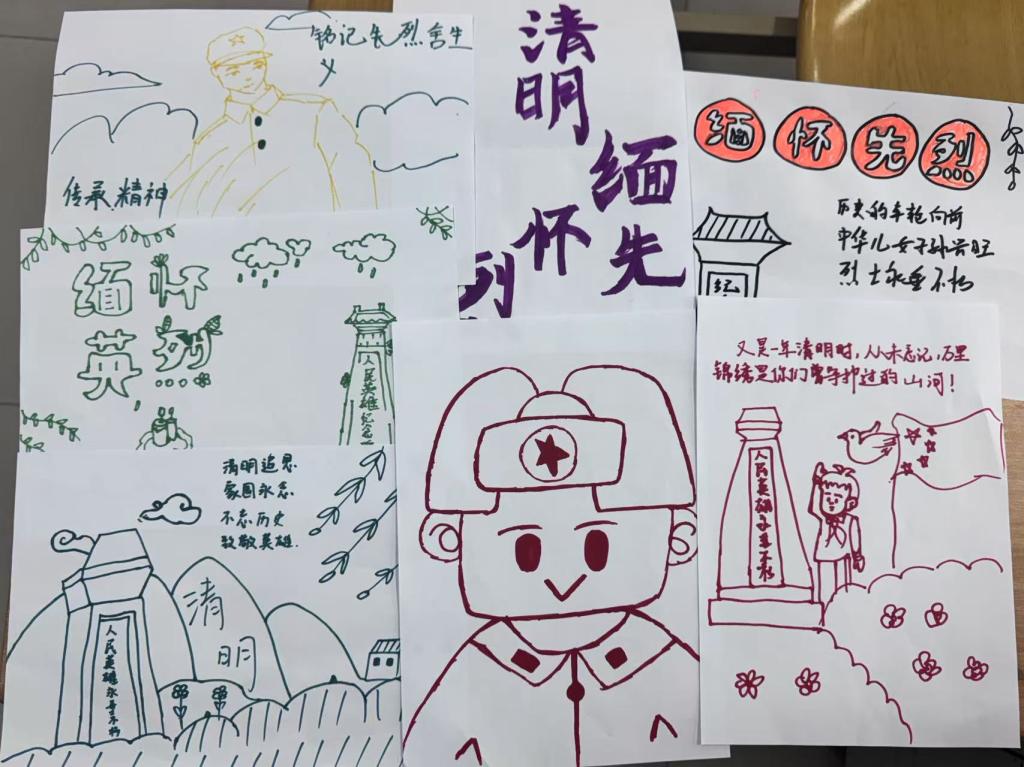 铭记先烈舍生
义
传承精神
清明
缅
怀先
烈
缅怀先烈
历史的车轮向前
中华儿女子孙兴旺
烈士永垂不朽
缅怀
英烈
人民英雄纪念
清明追思
家国永念
不忘历史
致敬英雄.
清
明
人民英雄永垂不朽
又是一年清明时,从未忘记,万里
锦绣是你们曾守护过的山河!
人民英雄永垂不朽